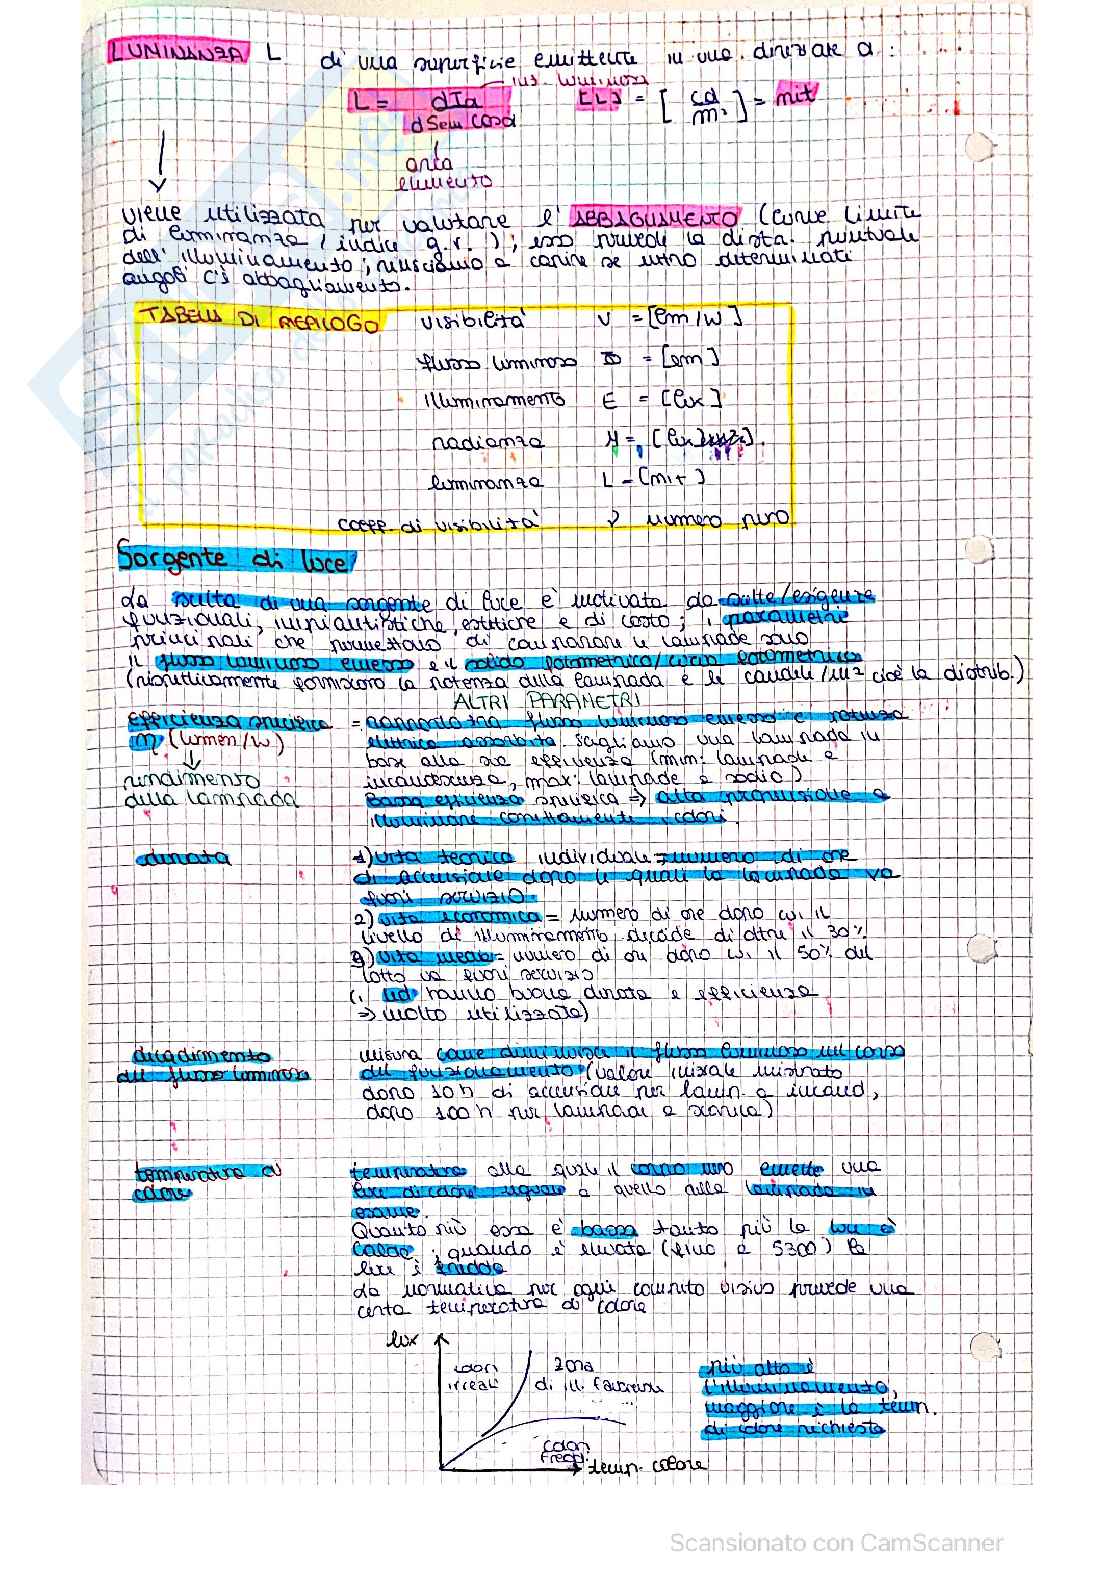 LUMINANZA L di una superficie emittente in una direz. data α :
int. luminosa
L = dIα [L] = [cd/m²] = nit
dSem cosα
area
elemento
viene utilizzata per valutare l'ABBAGLIAMENTO (curve limite
di luminanza / indice g.r.); esso prevede la distr. puntuale
dell'illuminamento; riusciamo a capire se entro determinati
angoli c'è abbagliamento.
TABELLA DI RIEPILOGO visibilità V = [lm/W]
flusso luminoso Φ = [lm]
illuminamento E = [lux]
radianza M = [lux]
luminanza L = [nit]
coeff. di visibilità ν numero puro
Sorgente di luce
La scelta di una sorgente di luce è motivata da scelte/esigenze
funzionali, impiantistiche, estetiche e di costo; i parametri
principali che permettono di comparare le lampade sono
il flusso luminoso emesso e il solido fotometrico/curva fotometrica
(rispettivamente forniscono la potenza della lampada e le candele/m² cioè la distrib.)
ALTRI PARAMETRI
efficienza specifica = rapporto tra flusso luminoso emesso e potenza
η (lumen/W) elettrica assorbita. Scegliamo una lampada in
base alla sua efficienza (min: lampade a
rendimento incandescenza, max: lampade a sodio)
della lampada Bassa efficienza specifica ⇒ alta propensione a
illuminare correttamente i colori.
durata 1) vita tecnica individuale = numero di ore
di accensione dopo le quali la lampada va
fuori servizio.
2) vita economica = numero di ore dopo cui il
livello di illuminamento decade di oltre il 30%
3) vita media = numero di ore dopo cui il 50% del
lotto va fuori servizio
(i led hanno buona durata e efficienza
⇒ molto utilizzate)
decadimento misura come diminuisce il flusso luminoso nel corso
del flusso luminoso del funzionamento (valore iniziale misurato
dopo 10 h di accensione per lamp. a incand,
dopo 100 h per lampade a scarica)
temperatura di temperatura alla quale il corpo nero emette una
colore luce di colore uguale a quello della lampada in
esame.
Quanto più essa è bassa tanto più la luce è
calda; quando è elevata (fino a 5300) la
luce è fredda
La normativa per ogni compito visivo prevede una
certa temperatura di colore
lux
colori zona
irreali di ill. favorevole
più alto è
l'illuminamento,
maggiore è la tem.
di colore richiesta
colori
freddi
temp. colore
Scansionato con CamScanner